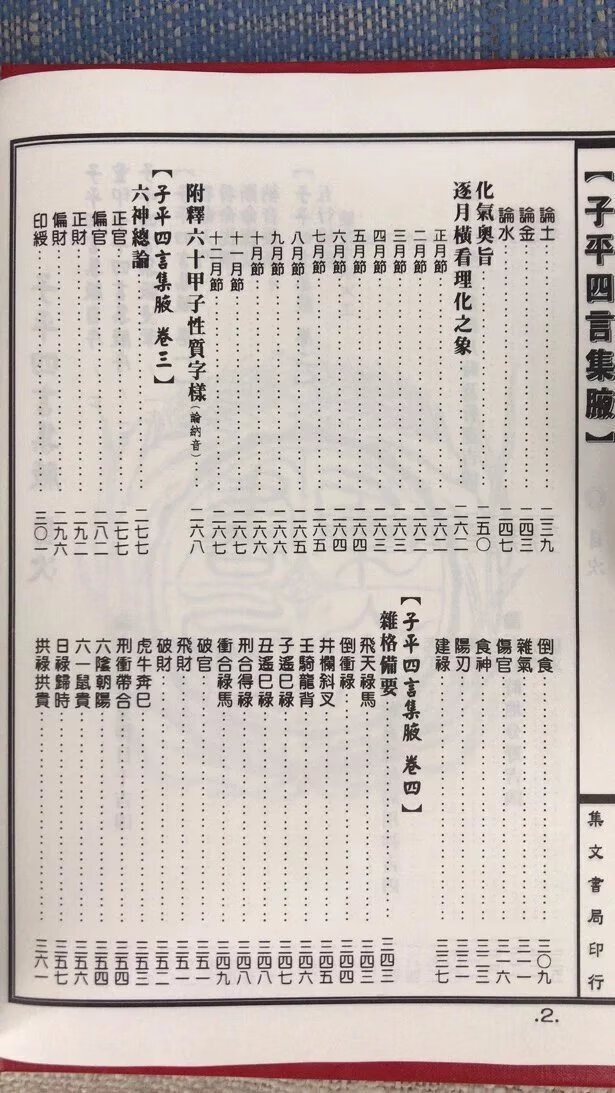 【子平四言集腋】
論土 二三九
論金 二四三
論水 二四七
化氣奧旨 二五〇
逐月橫看理化之象 二六二
正月節 二六二
二月節 二六二
三月節 二六三
四月節 二六三
五月節 二六四
六月節 二六四
七月節 二六五
八月節 二六五
九月節 二六六
十月節 二六六
十一月節 二六七
十二月節 二六七
附釋六十甲子性質字樣(論納音) 二六八
【子平四言集腋 卷三】
六神總論 二七七
正官 二七七
偏官 二八二
正財 二九二
偏財 二九六
印綬 三〇一
倒食 三〇九
雜氣 三一一
傷官 三一六
食神 三二三
陽刃 三三一
建祿 三三七
【子平四言集腋 卷四】
雜格備要 三四三
飛天祿馬 三四三
倒衝祿 三四四
井欄斜叉 三四五
壬騎龍背 三四六
子遙巳祿 三四七
丑遙巳祿 三四八
刑合得祿 三四八
衝合祿馬 三四九
破官 三五一
飛財 三五一
破財 三五二
虎牛奔巳 三五三
刑衝帶合 三五四
六陰朝陽 三五四
六一鼠貴 三五六
日祿歸時 三五七
拱祿拱貴 三六一
集文書局印行
.2.